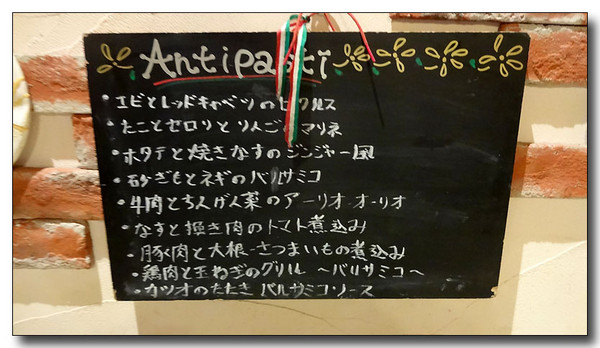 Antipasti
・エビとレッドキャベツのピクルス
・たことセロリとりんごのマリネ
・ホタテと焼きなすのジンジャー風
・砂ぎもとネギのバルサミコ
・牛肉とちんげん菜のアーリオ・オーリオ
・なすと挽き肉のトマト煮込み
・豚肉と大根・さつまいもの煮込み
・鶏肉と玉ねぎのグリル 〜バルサミコ〜
・カツオのたたき バルサミコソース